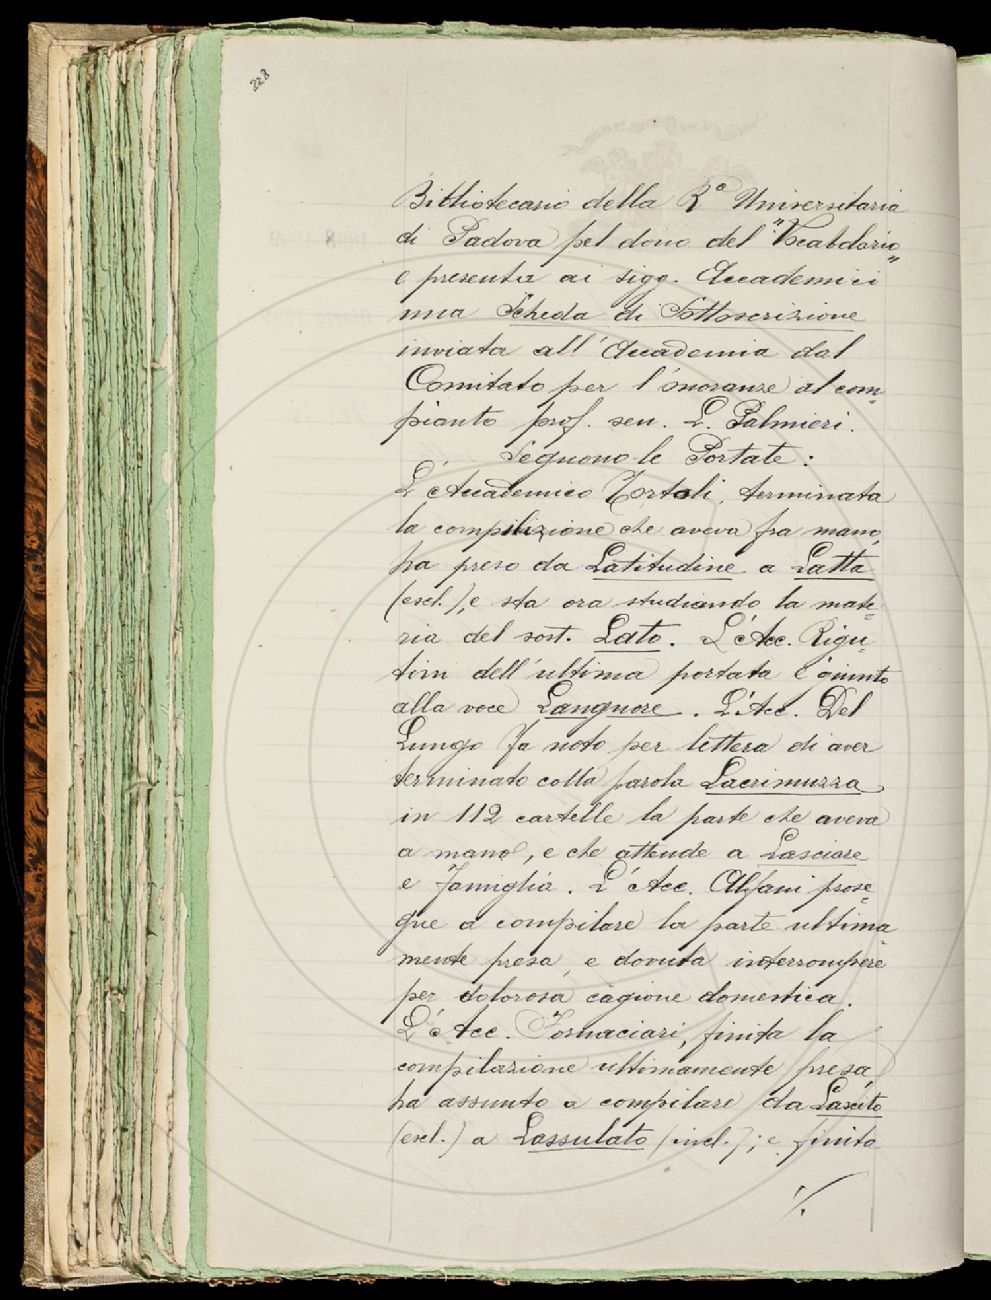 228
Bibliotecario della Rª Universitaria
di Padova pel dono del "Vocabolario"
e presenta ai sigg. Accademici
una Scheda di Sottoscrizione
inviata all'Accademia dal
Comitato per l'onoranze al com=
pianto prof. sen. L. Palmieri.
Seguono le Portate:
L'Accademico Tortoli, terminata
la compilazione che aveva fra mano,
ha preso da Latitudine a Latta
(escl.), e sta ora studiando la mate=
ria del sost. Lato. L'Acc. Rigu=
tini dell'ultima portata è giunto
alla voce Languore. L'Acc. Del
Lungo fa noto per lettera di aver
terminato colla parola Lacrimuzza,
in 112 cartelle la parte che aveva
a mano, e che attende a Lasciare
e Famiglia. L'Acc. Alfani prose=
gue a compilare la parte ultima=
mente presa, e dovuta interrompere
per dolorosa cagione domestica.
L'Acc. Fornaciari, finita la
compilazione ultimamente presa,
ha assunto a compilare da Lascito
(escl.) a Lassulato (incl.); e finito
·/.